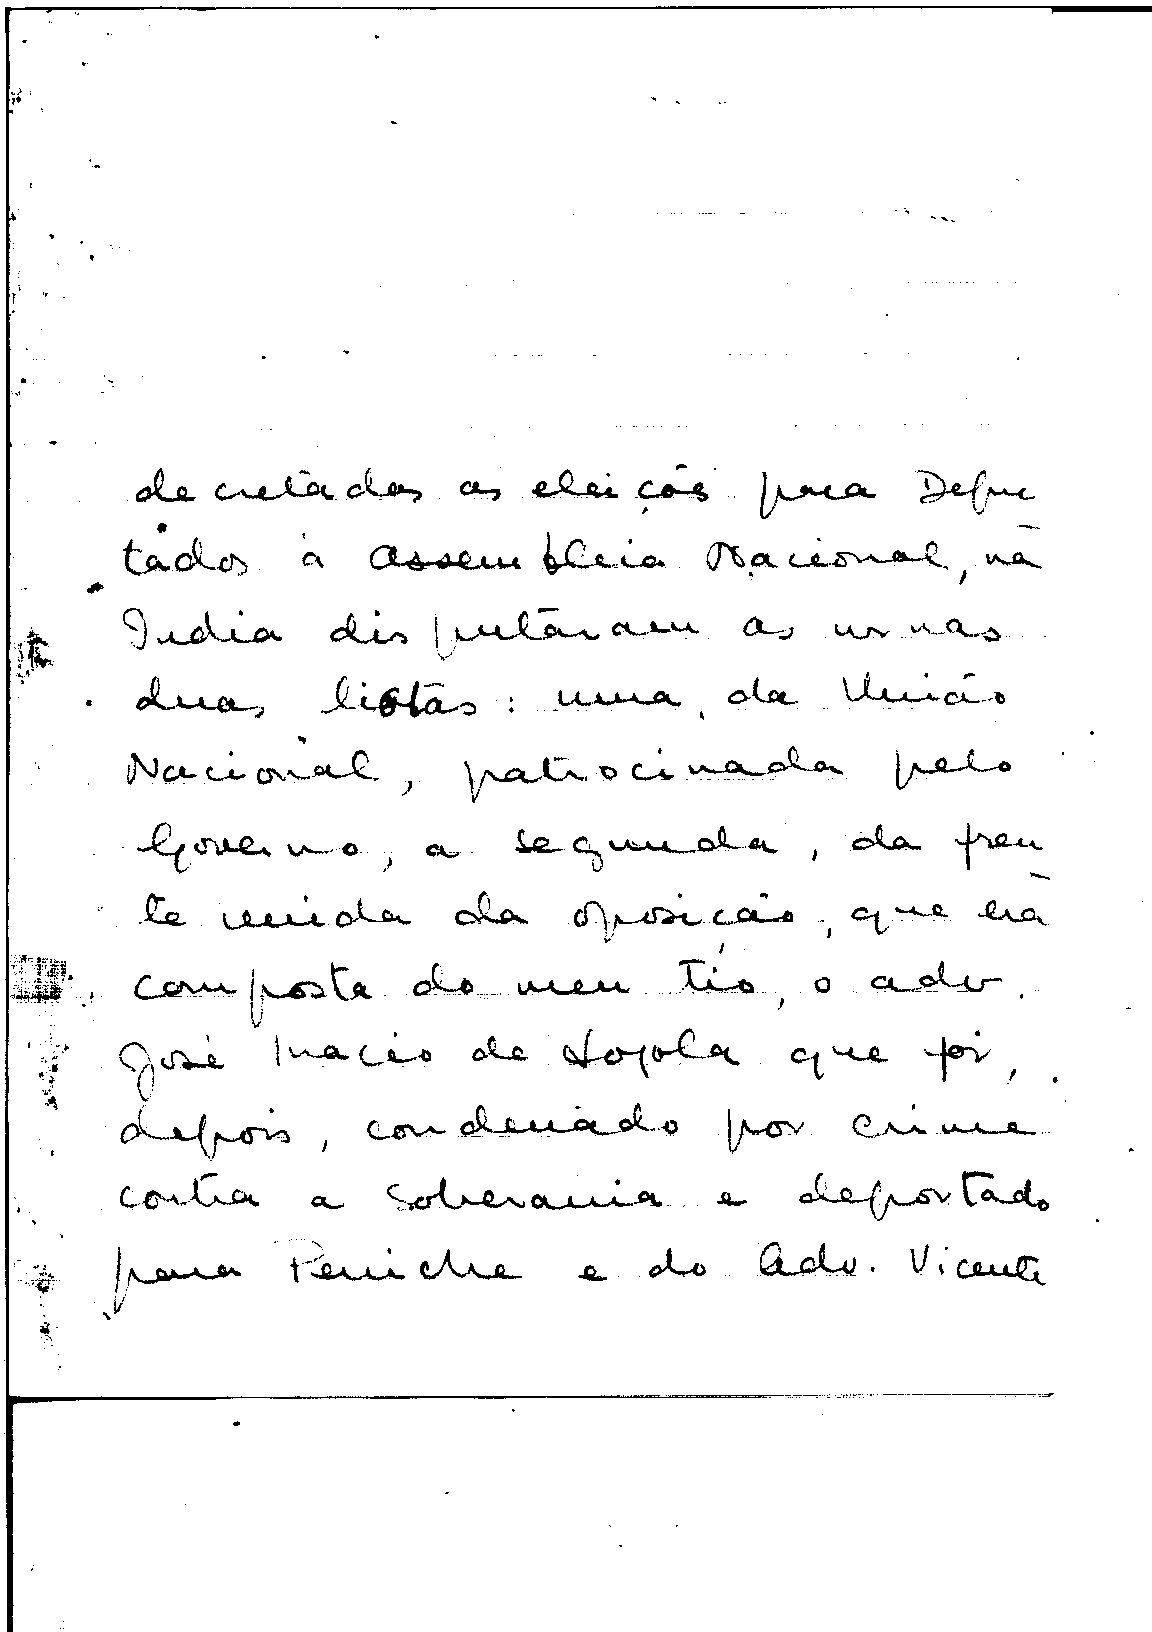 decretadas as eleições para Depu
tados à Assembleia Nacional, na
India disputáram as urnas
duas listas: uma, da União
Nacional, patrocinada pelo
Governo, a segunda, da fren
te unida da oposição, que era
composta do meu tio, o adv.
José Inacio de Loyola que foi,
depois, condenado por crime
contra a soberania e deportado
para Peniche e do Adv. Vicente